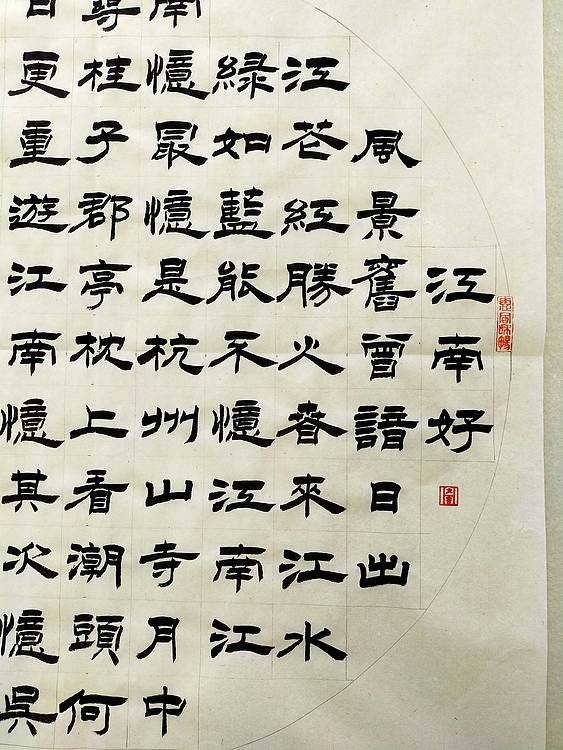 江南好
風景舊曾諳日出
江花紅勝火春來江水
綠如藍能不憶江南江
南憶最憶是杭州山寺月中
尋桂子郡亭枕上看潮頭何
日更重遊江南憶其次憶吳